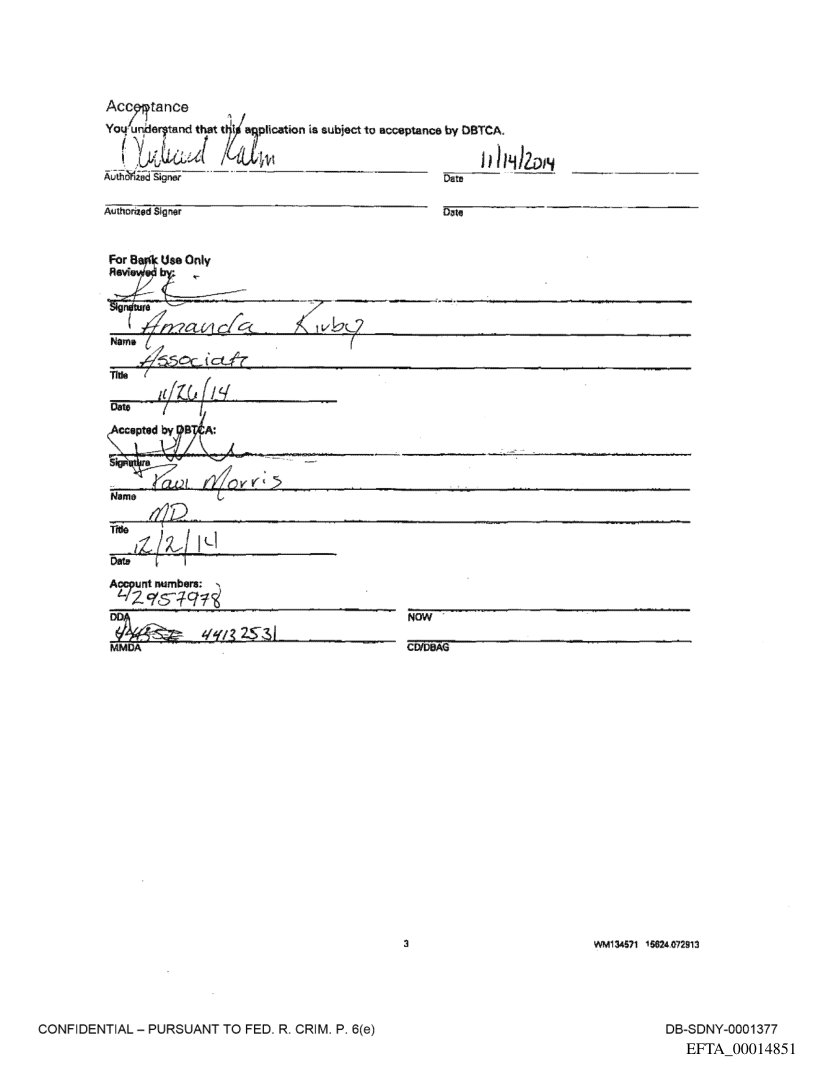 Acceptance
You understand that this application is subject to acceptance by DBTCA.
Richard Kahn 11/14/2014
Authorized Signer Date
Authorized Signer Date
For Bank Use Only
Reviewed by:
Signature
Amanda Kirby
Name
Associate
Title
11/26/14
Date
Accepted by DBTCA:
Signature
Paul Morris
Name
MD
Title
12/2/14
Date
Account numbers:
42957978
DDA NOW
44132531
MMDA CD/DBAG
3 WM134571 15624.072913
CONFIDENTIAL – PURSUANT TO FED. R. CRIM. P. 6(e) DB-SDNY-0001377
EFTA_00014851